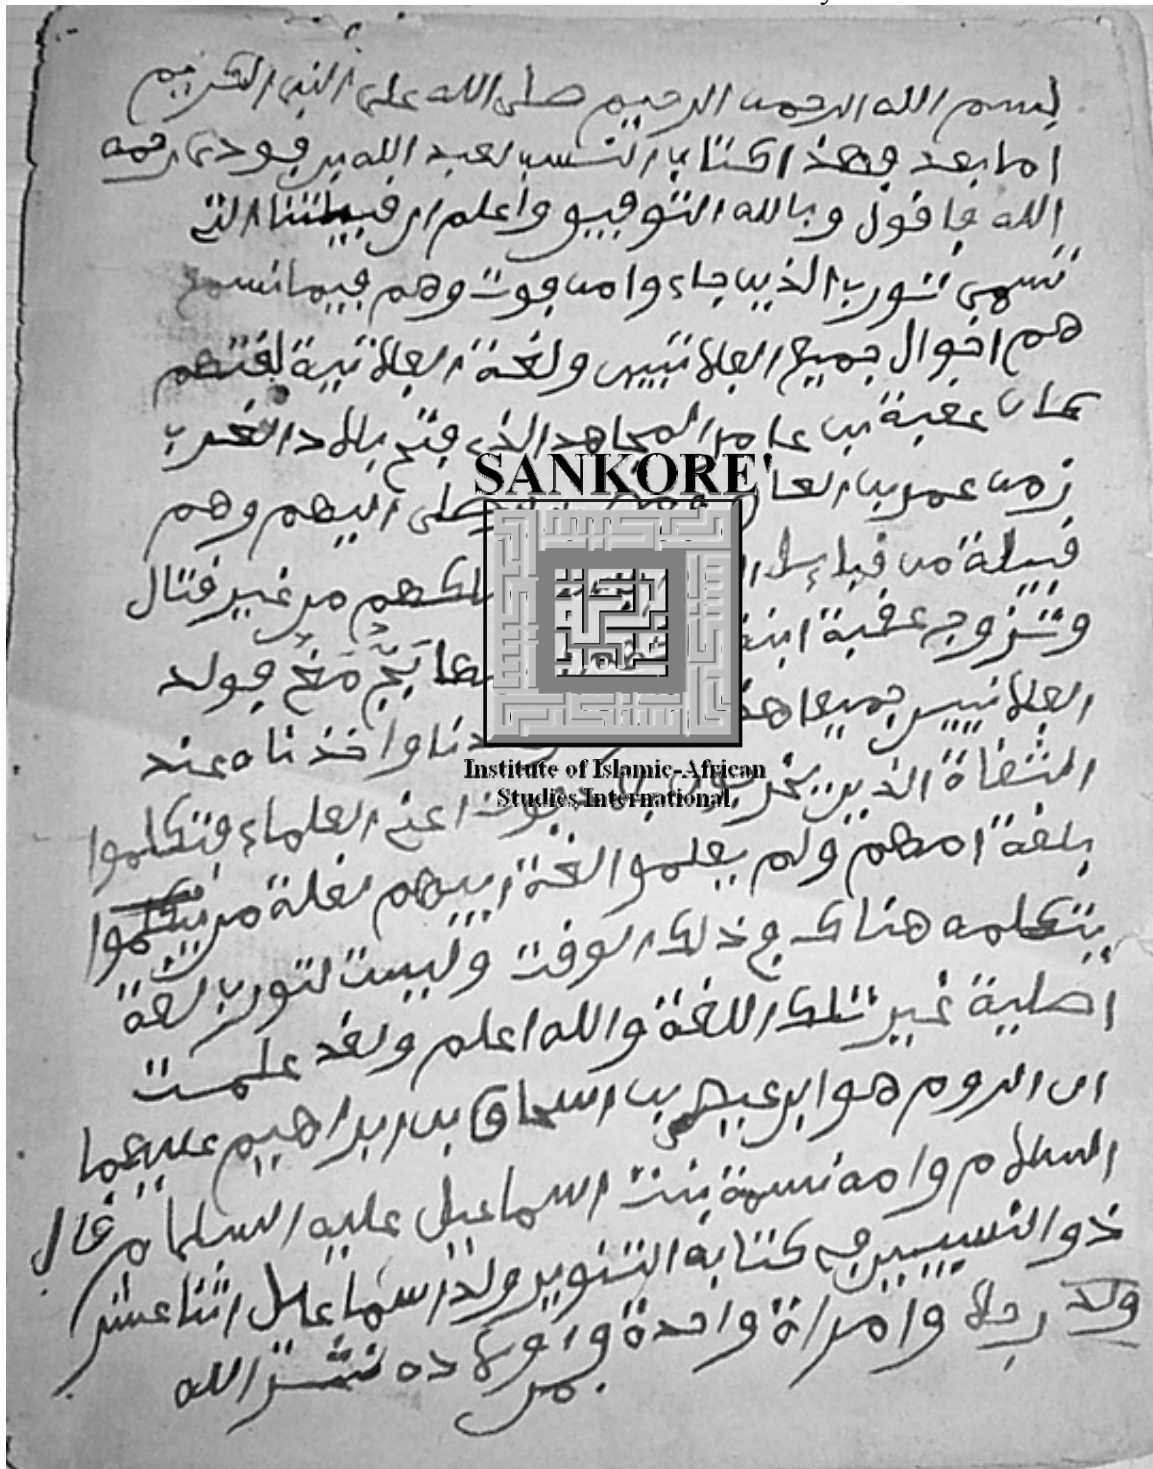 بسم الله الرحمن الرحيم صلى الله على النبي الكريم
اما بعد فهذا كتاب النسب لعبد الله بن فودي رحمه
الله فاقول وبالله التوفيق واعلم ان قبيلتنا التي
تسمى تورب الذين جاءوا من فوت وهم فيما نسمع
هم اخوال جميع الفلانيين ولغة الفلانية لغتهم
كان عقبة بن عامر المجاهد الذي فتح بلاد الغرب
زمن عمر بن العاص وصل اليهم وهم
قبيلة من قبايل من غير قتال
وتزوج عقبة ابنة بَجُّ مَنْغُ فولد
الفلانيين جميعا واخذناه عند
الثقاة الذين العلماء فتكلموا
بلغة امهم ولم يعلموا لغة ابيهم لقلة من
يتكلمه هناك في ذلك الوقت وليست لتورب لغة
اصلية غير تلك اللغة والله اعلم ولقد علمت
ان الروم هو ابن عيص بن اسحاق بن ابراهيم عليهما
السلام وامه نسمة بنت اسماعيل عليه السلام قال
ذو النسبين في كتابه التنوير ولد اسماعيل اثنا عشر
ولد رجلا وامراة واحدة ومن اولاده نشر الله
SANKORE'
Institute of Islamic-African
Studies International